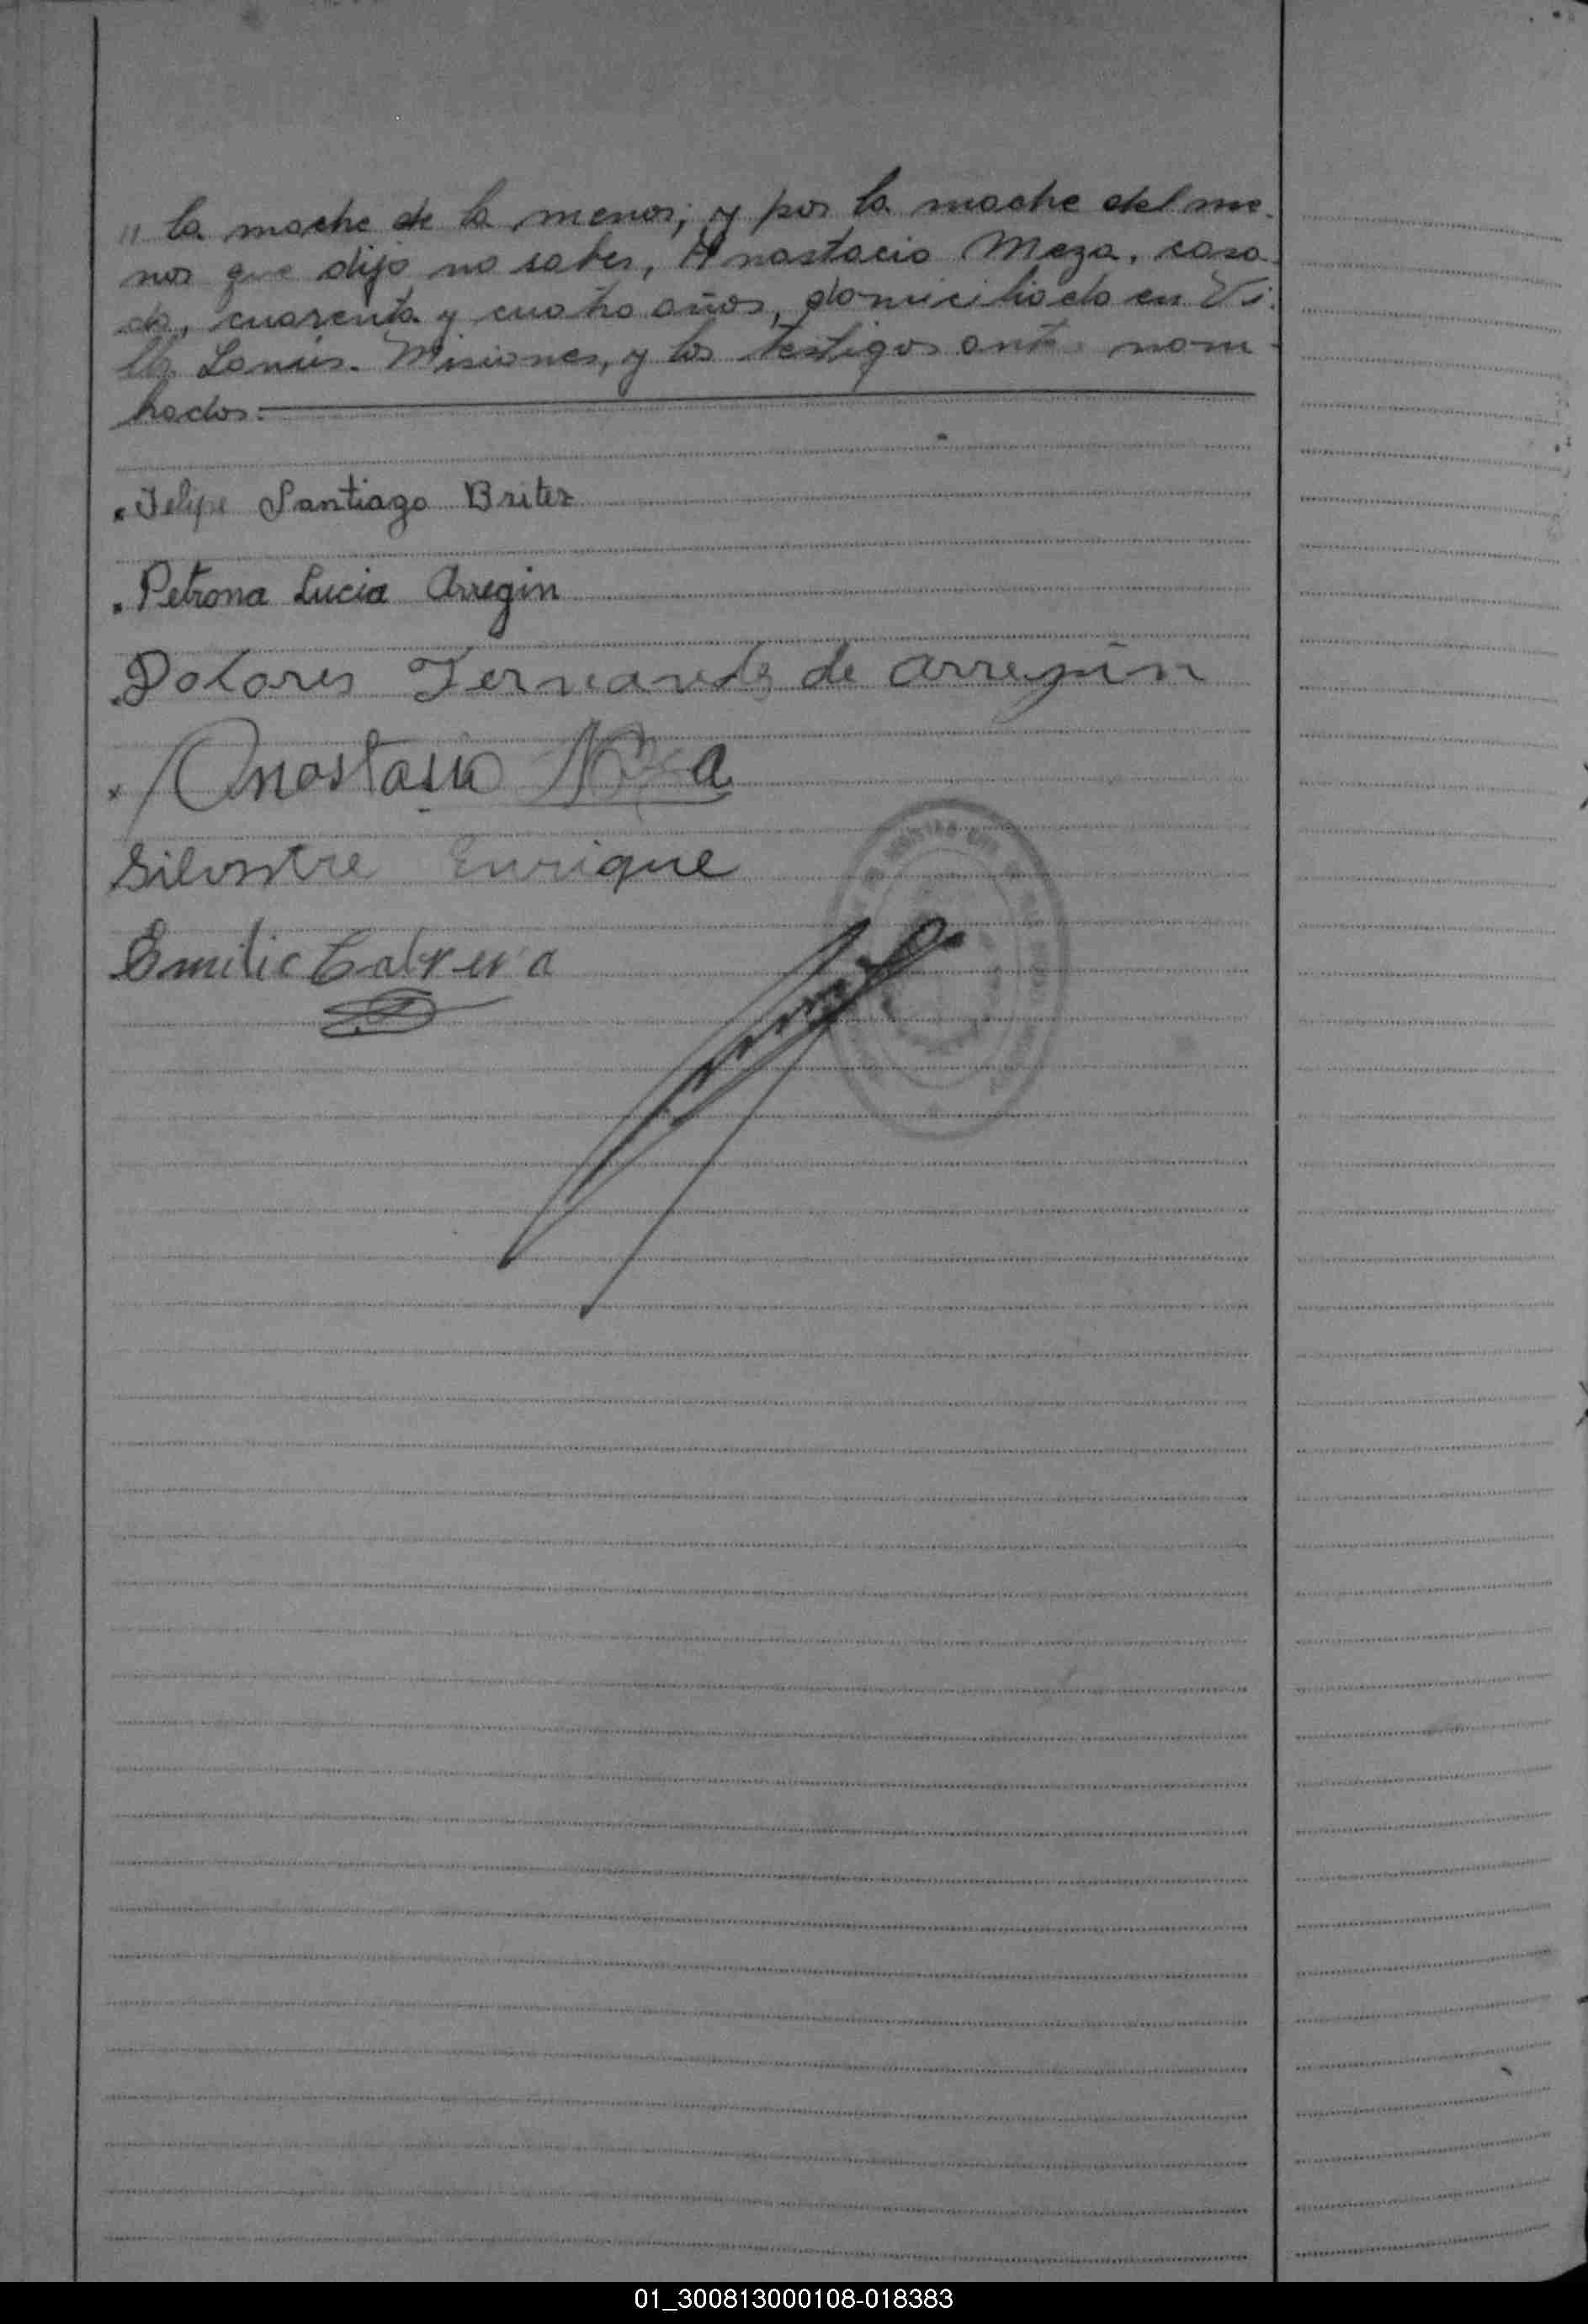 " la madre de la menor; y por la madre del me-
nor que dijo no saber, Anastacio Meza, casa-
do, cuarenta y cuatro años, domiciliado en Vi-
lla Lanús. Misiones, y los testigos antes nom-
brados.
Felipe Santiago Britez
Petrona Lucia Arregin
Dolores Fernandez de Arregin
Anastasio Meza
Silvestre Enrique
Emilio Cabrera
01_300813000108-018383